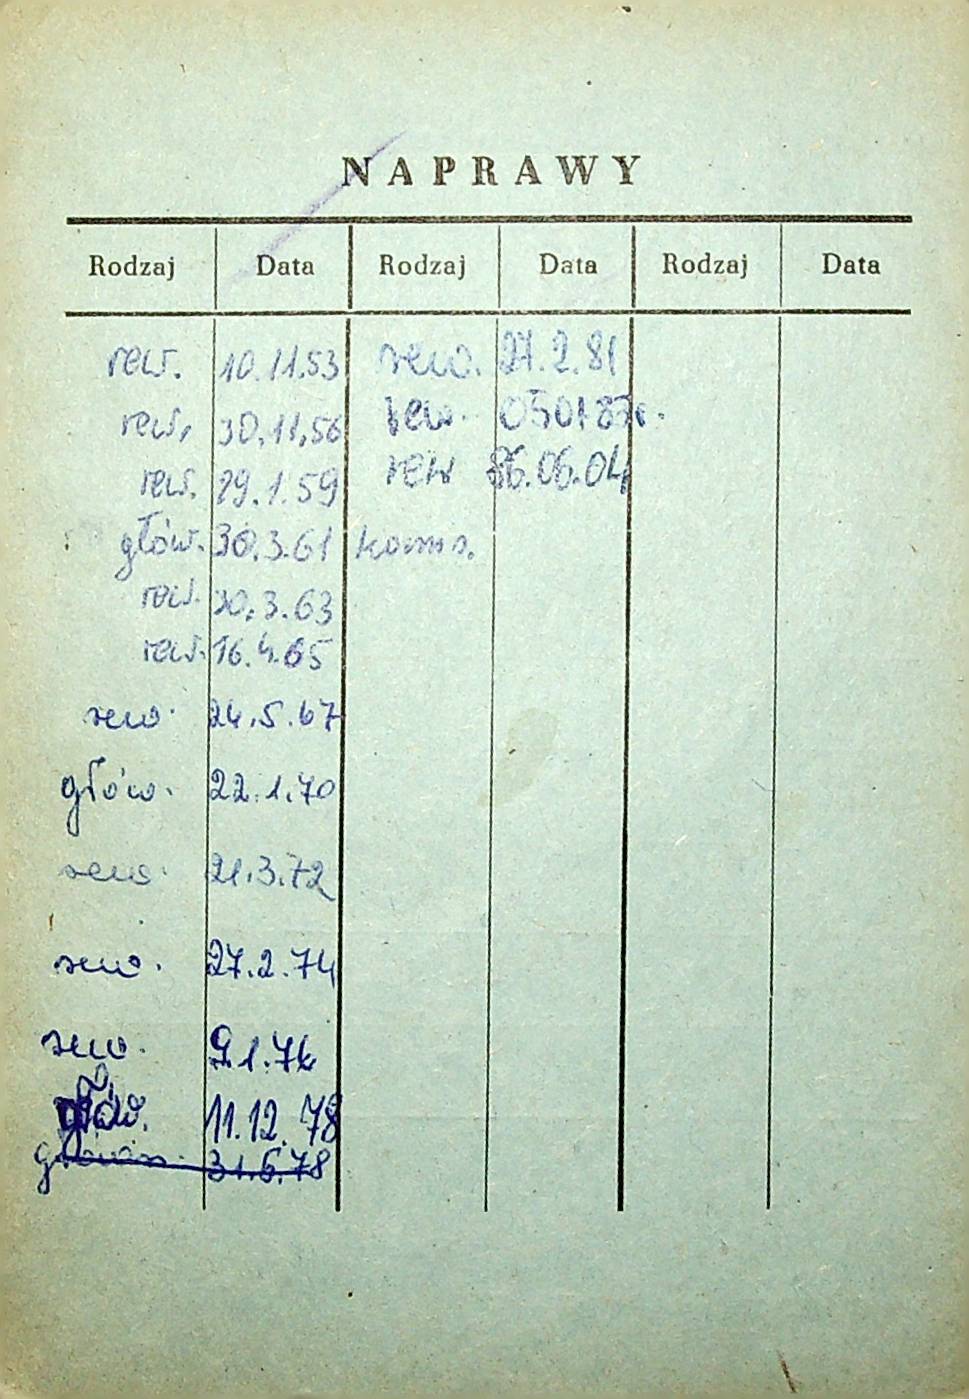 NAPRAWY
Rodzaj Data Rodzaj Data Rodzaj Data
rew. 10.11.53 rew. 27.2.81
rew. 30.11.56 rew. 050183r.
rew. 29.1.59 rew 86.06.04
głów. 30.3.61
rew. 30.3.63
rew. 16.4.65
rew. 24.5.67
głów. 22.1.70
rew. 21.3.72
rew. 27.2.74
rew. 9.1.76
głów. 11.12.78
31.5.78